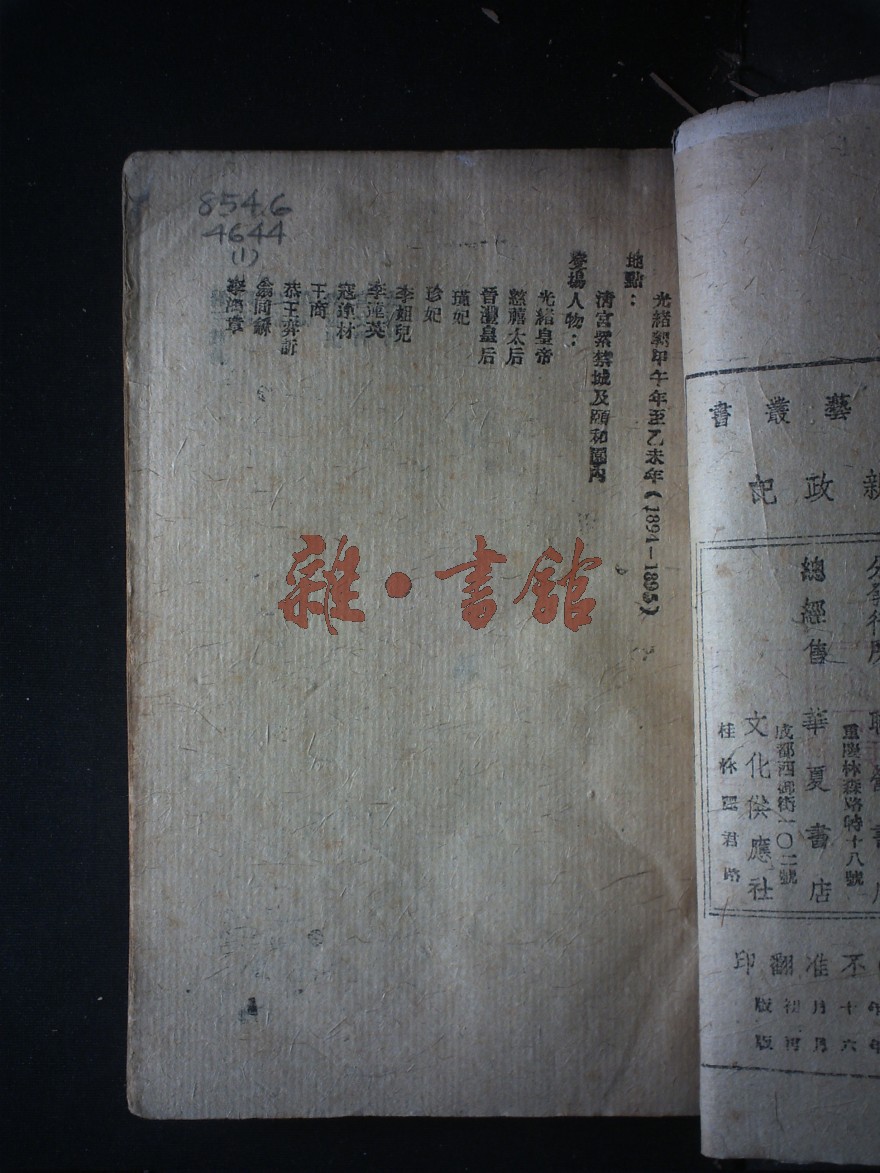 光緒朝甲午年至乙未年（1894—1895）
地點：
清宮紫禁城及頤和園內
登場人物：
光緒皇帝
慈禧太后
晉灃皇后
瑾妃
珍妃
李姐兒
李蓮英
寇連材
王商
恭王奕訢
翁同龢
李鴻章
854.6
4644
(1)
雜·書館
藝叢書
新政記
分發行所
總經售
華夏書店
成都西御街一〇二號
重慶林森路特十八號
文化供應社
桂林麗君路
不准翻印
年十月初版
年六月再版